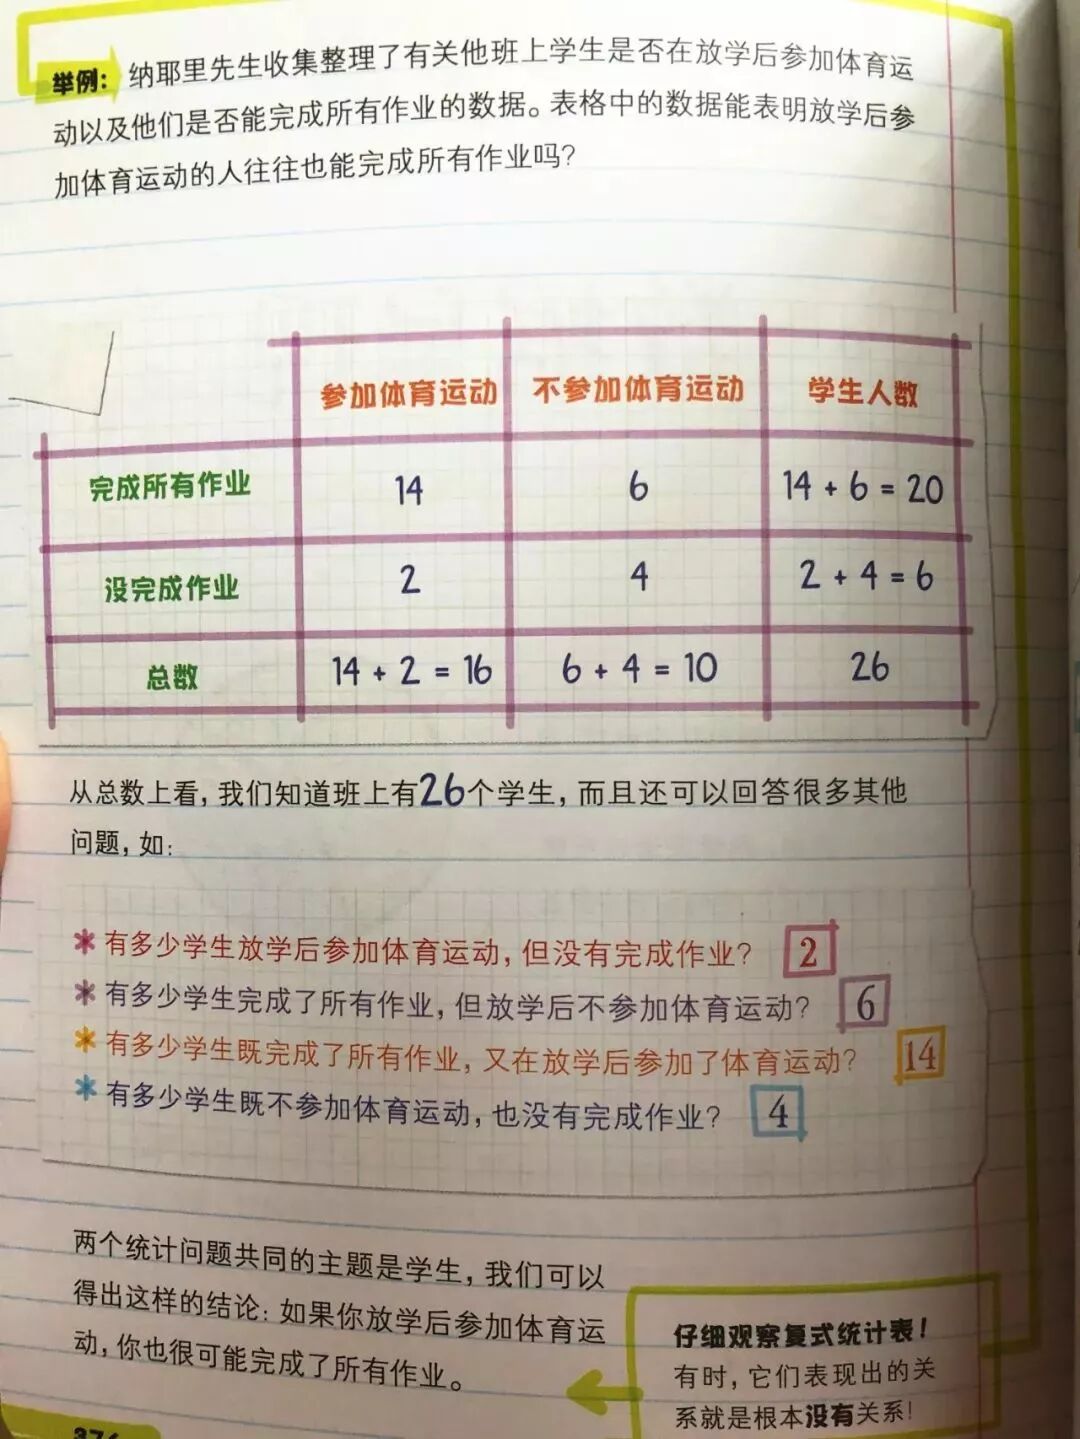 举例：纳耶里先生收集整理了有关他班上学生是否在放学后参加体育运
动以及他们是否能完成所有作业的数据。表格中的数据能表明放学后参
加体育运动的人往往也能完成所有作业吗？
参加体育运动 不参加体育运动 学生人数
完成所有作业 14 6 14 + 6 = 20
没完成作业 2 4 2 + 4 = 6
总数 14 + 2 = 16 6 + 4 = 10 26
从总数上看，我们知道班上有26个学生，而且还可以回答很多其他
问题，如：
* 有多少学生放学后参加体育运动，但没有完成作业？ 2
* 有多少学生完成了所有作业，但放学后不参加体育运动？ 6
* 有多少学生既完成了所有作业，又在放学后参加了体育运动？ 14
* 有多少学生既不参加体育运动，也没有完成作业？ 4
两个统计问题共同的主题是学生，我们可以
得出这样的结论：如果你放学后参加体育运
动，你也很可能完成了所有作业。
仔细观察复式统计表！
有时，它们表现出的关
系就是根本没有关系！